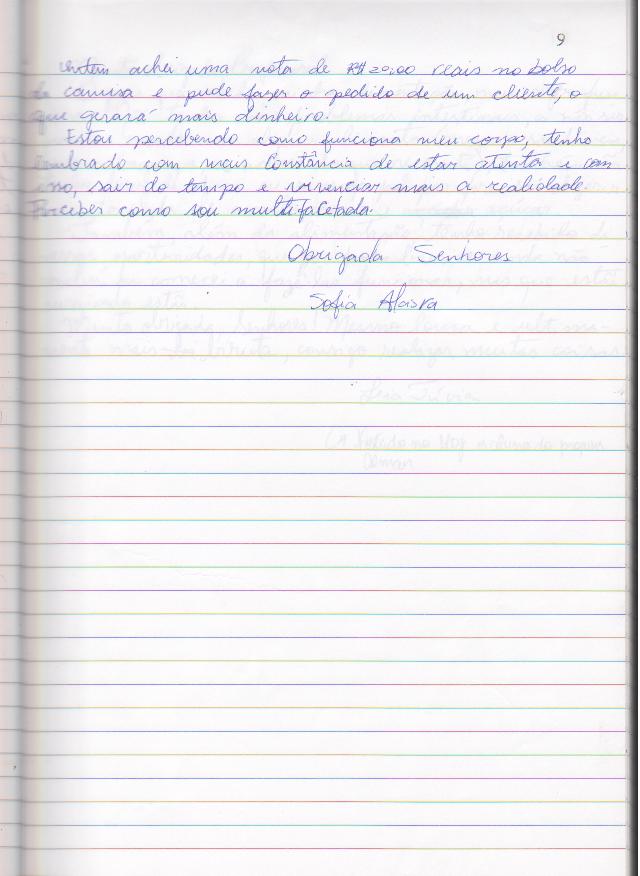 9
ontem achei uma nota de R$ 20,00 reais no bolso
da camisa e pude fazer o pedido de um cliente, o
que gerará mais dinheiro.
Estou percebendo como funciona meu corpo, tenho
lembrado com mais Constância de estar atenta e com
isso, sair do tempo e vivenciar mais a realidade.
Perceber como sou multifacetada.
Obrigada Senhores
Sofia Alasva